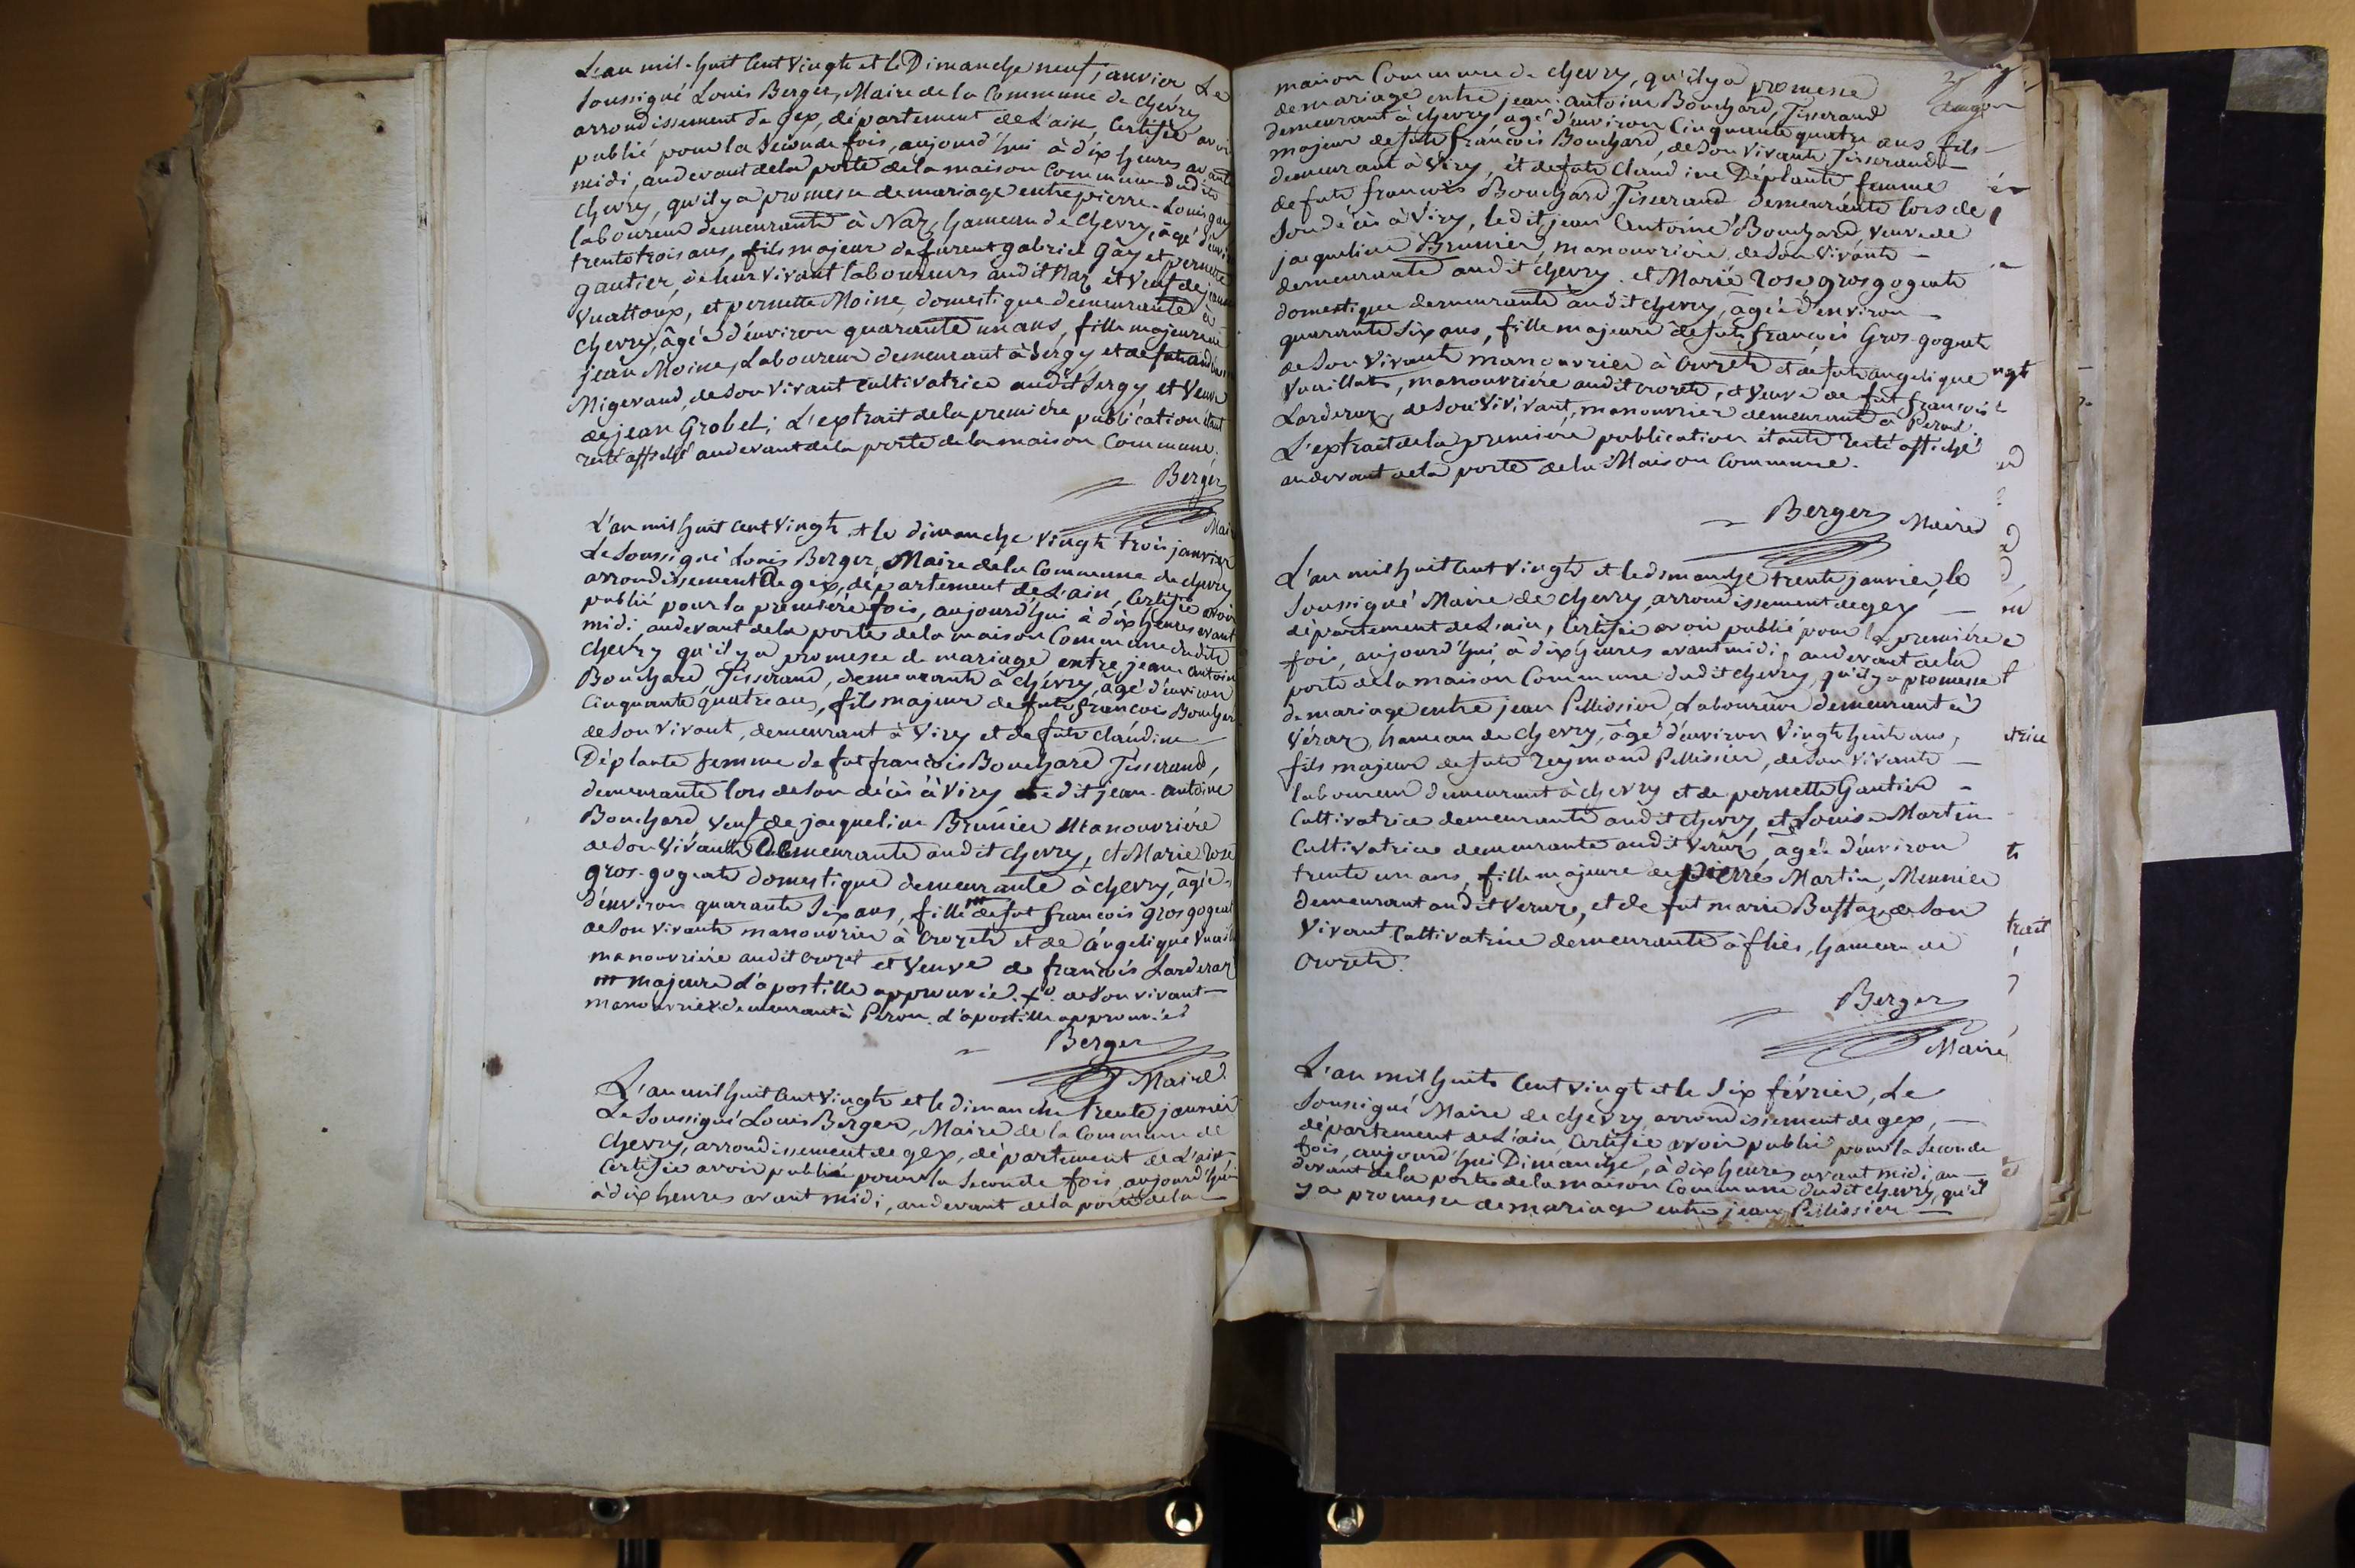 L'an mil-huit Cent Vingt et le Dimanche neuf janvier Le
Soussigné Louis Berger, Maire de la Commune de Chevry
arrondissement de Gex, département de L'ain, Certifie avoir
publié pour la Seconde fois, aujourd'hui à dix heures avant
midi, audevant de la porte de la maison Commune dudit
Chevry, qu'il y a promesse de mariage entre pierre-Louis gay
laboureur demeurant à Naz, hameau de Chevry, âgé d'envi
trente trois ans, fils majeur de furent gabriel Gay et pernette
gautier, de leur vivant laboureurs audit Naz, et Veuf de jeanne
Vuattoux, et pernette Moine, domestique demeurante à
Chevry, âgée d'environ quarante un ans, fille majeure de
jean Moine, Laboureur demeurant à Sergy et de
Migerand, de Son vivant Cultivatrice audit Sergy et Veuve
de jean Grobel; L'extrait de la première publication étant
resté affiché audevant de la porte de la maison Commune.
Berger
Maire
L'an mil huit Cent Vingt et le dimanche Vingt trois janvier
Le Soussigné Louis Berger, Maire de la Commune de Chevry
arrondissement De gex, département de L'ain, Certifie avoir
publié pour la première fois, aujourd'hui à dix heures avant
midi, audevant de la porte de la maison Commune dudit
Chevry qu'il y a promesse de mariage entre jean-antoine
Bouchard Tisserand, demeurant à Chevry, âgé d'environ
Cinquante quatre ans, fils majeur de fut francois Bouchard
de Son Vivant, demeurant à Viry et de fute Claudine
Déplante femme de fut francois Bouchard Tisserand,
demeurante lors de Son décès à Viry Ledit jean-antoine
Bouchard Veuf de jacqueline Brunier Manouvrière
de Son Vivante Demeurante audit Chevry, et Marie Rose
gros-gogeat domestique demeurante à Chevry, âgée
d'environ quarante Six ans, fille de fut francois gros gogeat
de Son Vivant manouvrier à Crozet et de Angelique Vuaill
manouvrière audit Crozet et Veuve de francois Larderaz
majeure L'apostille approuvée. de Son vivant
manouvrier demeurant à Peron. L'apostille approuvée
Berger
Maire
L'an mil huit Cent Vingt et le dimanche trente janvier
Le Soussigné Louis Berger, Maire de la Commune de
Chevry, arrondissement de gex, département de L'ain
Certifie avoir publié pour la Seconde fois, aujourd'hui
à dix heures avant midi, audevant de la porte de la
maison Commune de Chevry, qu'il y a promesse
de mariage entre jean-antoine Bouchard, Tisserand
demeurant à Chevry âgé d'environ Cinquante quatre ans fils
majeur de fut francois Bouchard, de Son Vivant Tisserand
demeurant à Viry, et de fute Claudine Déplante, femme
de fut francois Bouchard Tisserand demeurante lors de
Son décès à Viry, ledit jean Antoine Bouchard Veuve de
jacqueline Brunier, manouvrière de Son Vivante
demeurante audit Chevry et Marie Rose gros gogeate
domestique demeurante audit Chevry, âgée d'environ
quarante Six ans, fille majeure de fut françois Gros-gogeat
de Son Vivant manouvrier à Crozet et de fute angelique
Vuaillat, manouvrière audit Crozet, et Veuve de fut François
Larderaz, de Son Vivivant, manouvrier demeurant à Peron.
L'extrait de la première publication étant resté affiché
audevant de la porte de la Maison Commune.
Berger Maire
L'an mil huit Cent Vingt et le dimanche trente janvier, le
Soussigné Maire de Chevry, arrondissement de gex
département de L'ain, Certifie avoir publié pour la première
fois, aujourd'hui, à dix heures avant midi, audevant de la
porte de la maison Commune dudit Chevry, qu'il y a promesse
de mariage entre jean Pellissier, Laboureur demeurant à
Véraz, hameau de Chevry, âgé d'environ Vingt huit ans,
fils majeur de fut Reymond Pellissier, de Son Vivant
laboureur demeurant à Chevry et de pernette Gautier
Cultivatrice demeurante audit Chevry, et Louise Martin
Cultivatrice demeurante audit Veraz, âgée d'environ
trente un ans, fille majeure de pierre Martin, Meunier
Demeurant audit Veraz, et de fut marie Buffaz, de Son
Vivant Cultivatrice demeurante à flies, hameau de
Crozet.
Berger
Maire
L'an mil huit Cent vingt et le Six février, Le
Soussigné Maire de Chevry, arrondissement de gex,
département de L'ain, Certifie avoir publié pour la Seconde
fois, aujourd'hui Dimanche, à dix heures avant midi, au
devant de la porte de la maison Commune dudit Chevry, qu'il
y a promesse de mariage entre jean Pellissier